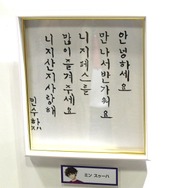 안녕하세요
만나서 반가워요
니지페스를
많이 즐겨주세요
니지산지 사랑해
민수하
ミン スゥーハ